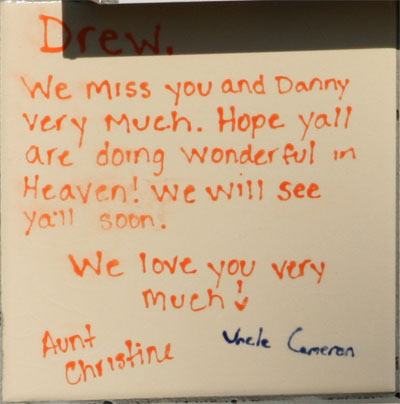 Drew,
We miss you and Danny
very much. Hope yall
are doing wonderful in
Heaven! We will see
ya'll soon.
We love you very
much!
Aunt
Christine
Uncle Cameron